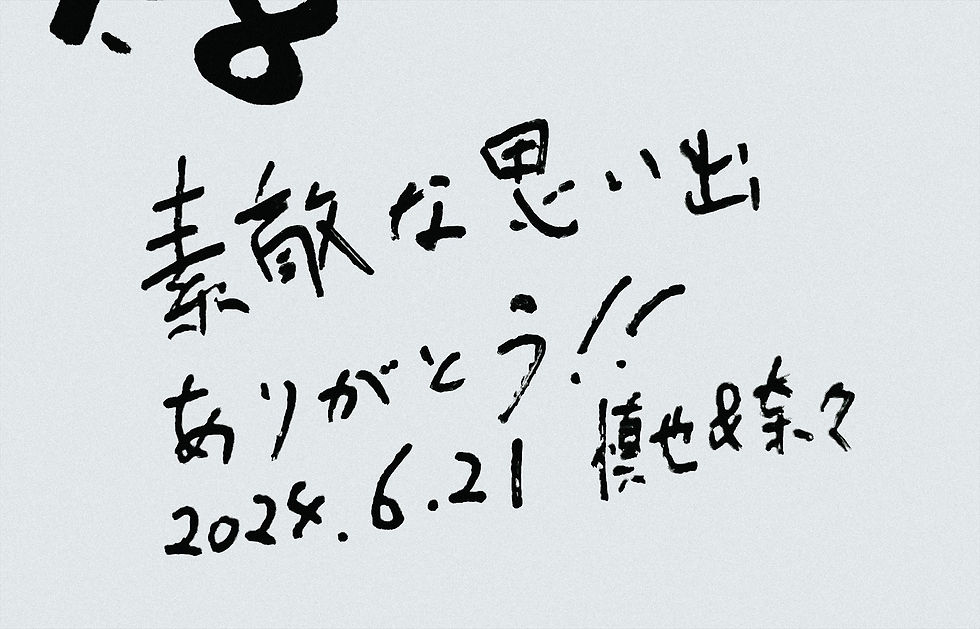 素敵な思い出
ありがとう!!
2024.6.21 慎也&奈々